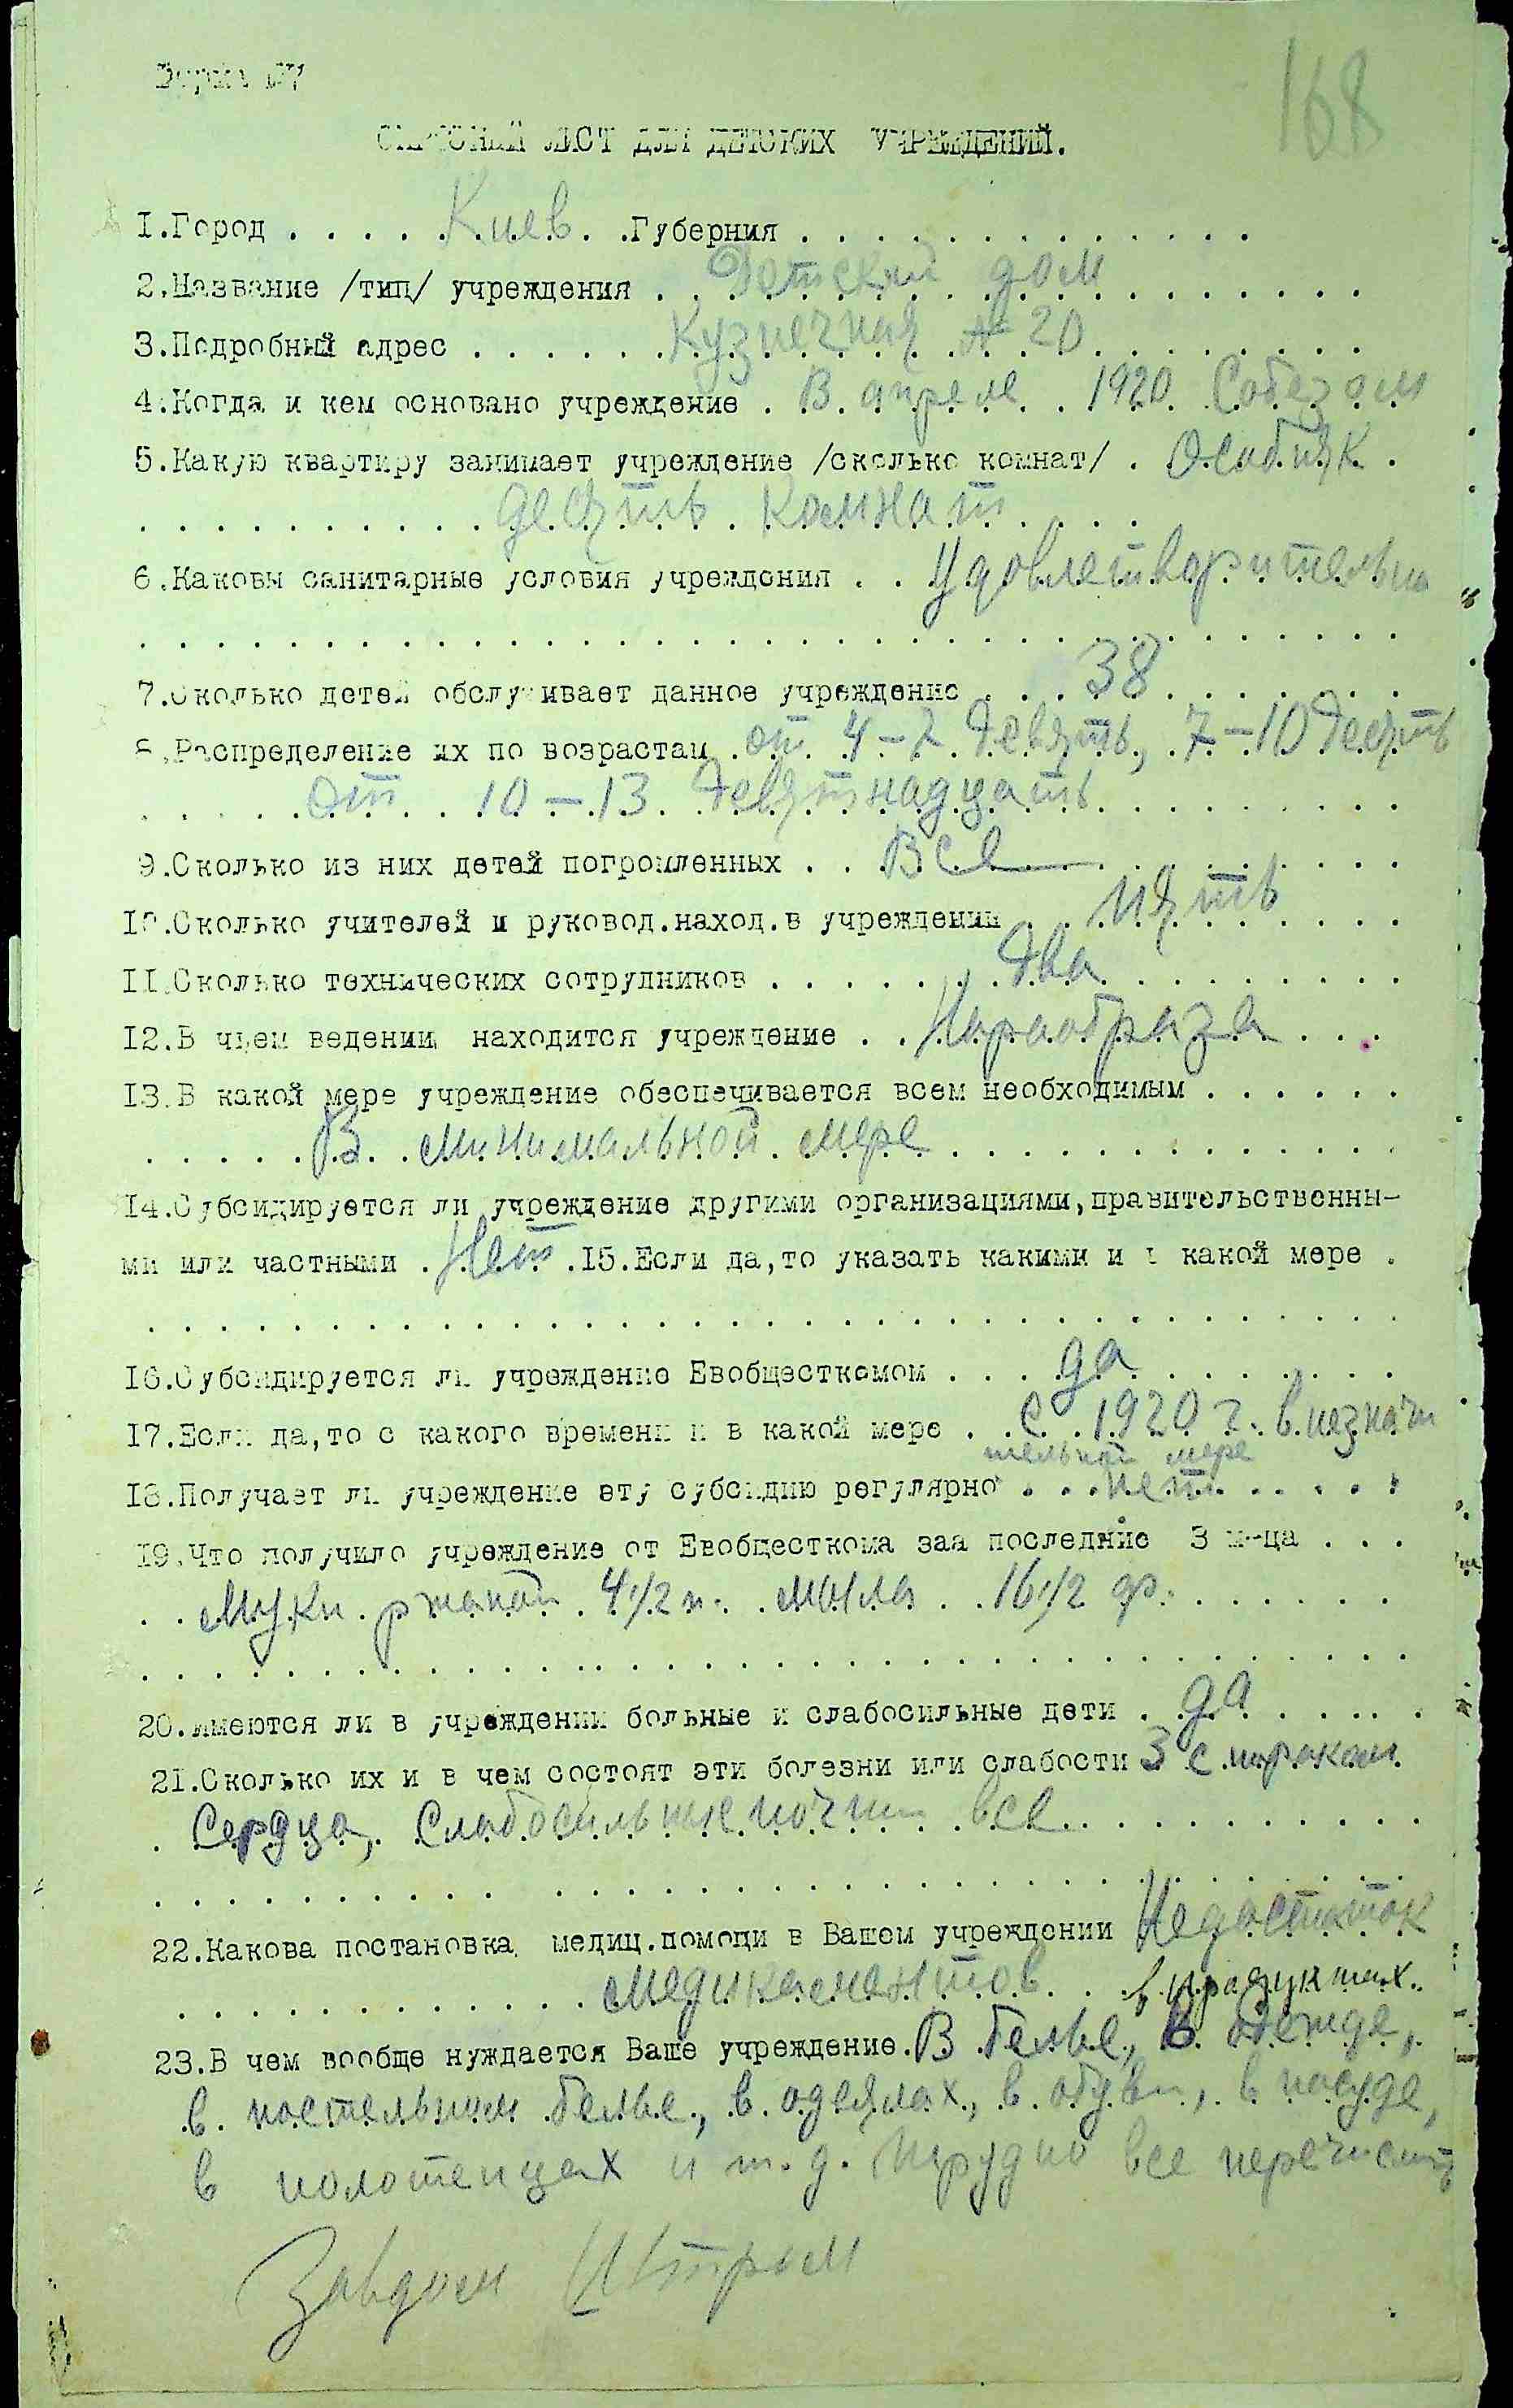 Форма №7
168
ОПРОСНЫЙ ЛИСТ ДЛЯ ДЕТСКИХ УЧРЕЖДЕНИЙ.
1.Город . . . . . Киев . .Губерния . . . . . . . . . . . . .
2.Название /тип/ учреждения . . Детский дом . . . . . . .
3.Подробный адрес . . . . . . Кузнечная № 20 . . . . . . .
4.Когда и кем основано учреждение . В апреле . 1920 Собезом
5.Какую квартиру занимает учреждение /сколько комнат/ . Особняк .
. . . . . . . . . . десять комнат . . . .
6.Каковы санитарные условия учреждения . . Удовлетворительны
7.Сколько детей обслуживает данное учреждение . . . 38 . . . . . .
8.Распределение их по возрастам . от 4-7 девять, 7-10 десять
. . . . . от 10-13 девятнадцать . . . . . . . .
9.Сколько из них детей погромленных . . Все . . . . . . .
10.Сколько учителей и руковод.наход.в учреждении . . пять . . .
11.Сколько технических сотрудников . . . . . . два . . . . . . .
12.В чьем ведении находится учреждение . . Наробраза . . .
13.В какой мере учреждение обеспечивается всем необходимым . . . . . .
. . . . . В минимальной мере . . . . . . . . . . . . .
14.Субсидируется ли учреждение другими организациями,правительственны-
ми или частными . Нет .15.Если да,то указать какими и в какой мере .
16.Субсидируется ли учреждение Евобщесткомом . . . да . . . . . . .
17.Если да,то с какого времени и в какой мере . . С 1920 г. в незначи
тельной мере
18.Получает ли учреждение эту субсидию регулярно . . . нет . . . . .
19.Что получило учреждение от Евобщесткома заа последние 3 м-ца . . .
. . Муки ржаной 4 1/2 п. . мыла . . 16 1/2 ф. . . . . . .
20.Имеются ли в учреждении больные и слабосильные дети . да . . . . .
21.Сколько их и в чем состоят эти болезни или слабости 3 с пороком
. Сердца, Слабосильные почти все . . . . . . . . . .
22.Какова постановка медиц.помощи в Вашем учреждении Недостаток
. . . . . . . . . . . . медикаментов . . в продуктах.
23.В чем вообще нуждается Ваше учреждение. В белье, В одежде,
в постельном белье, в одеялах, в обуви, в посуде,
в полотенцах и т.д. трудно все перечислить
Завдом Штрым